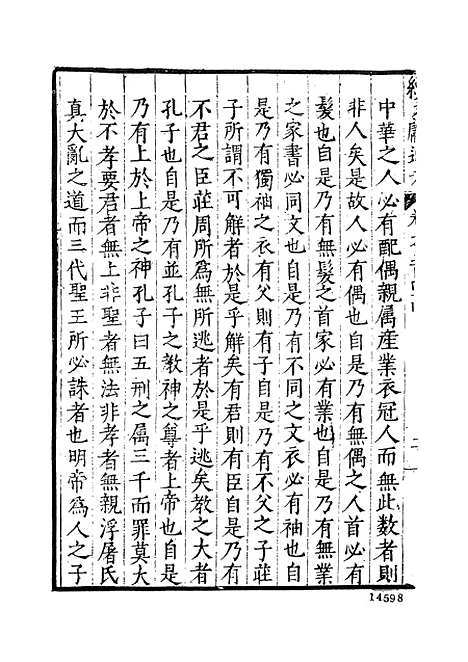 中華之人必有配偶親屬産業衣冠人而無此數者則
非人矣是故人必有偶也自是乃有無偶之人首必有
髮也自是乃有無髮之首家必有業也自是乃有無業
之家書必同文也自是乃有不同之文衣必有袖也自
是乃有獨袖之衣有父則有子自是乃有不父之子莊
子所謂不可解者於是乎解矣有君則有臣自是乃有
不君之臣莊周所為無所逃者於是乎逃矣教之大者
孔子也自是乃有並孔子之教神之尊者上帝也自是
乃有上於上帝之神孔子曰五刑之屬三千而罪莫大
於不孝要君者無上非聖者無法非孝者無親浮屠氏
真大亂之道而三代聖王所必誅者也明帝為人之子
14598